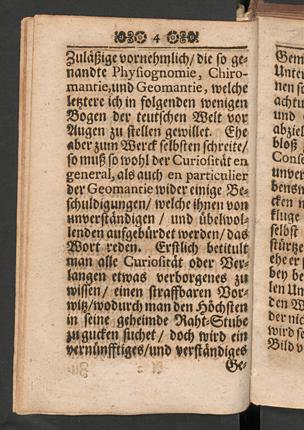 4
Zuläßige vornehmlich/ die so ge-
nandte Physiognomie, Chiro-
mantie, und Geomantie, welche
letztere ich in folgenden wenigen
Bogen der teutschen Welt vor
Augen zu stellen gewillet. Ehe
aber zum Werck selbsten schreite/
so muß so wohl der Curiosität en
general, als auch en particulier
der Geomantie wider einige Be-
schuldigungen/ welche ihnen von
unverständigen / und übelwol-
lenden aufgebürdet werden/ das
Wort reden. Erstlich betitult
man alle Curiosität oder Ver-
langen etwas verborgenes zu
wissen / einen straffbaren Vor-
witz/ wodurch man den Höchsten
in seine geheimde Raht-Stube
zu gucken suchet / doch wird ein
vernünfftiges/ und verständiges
Ge-